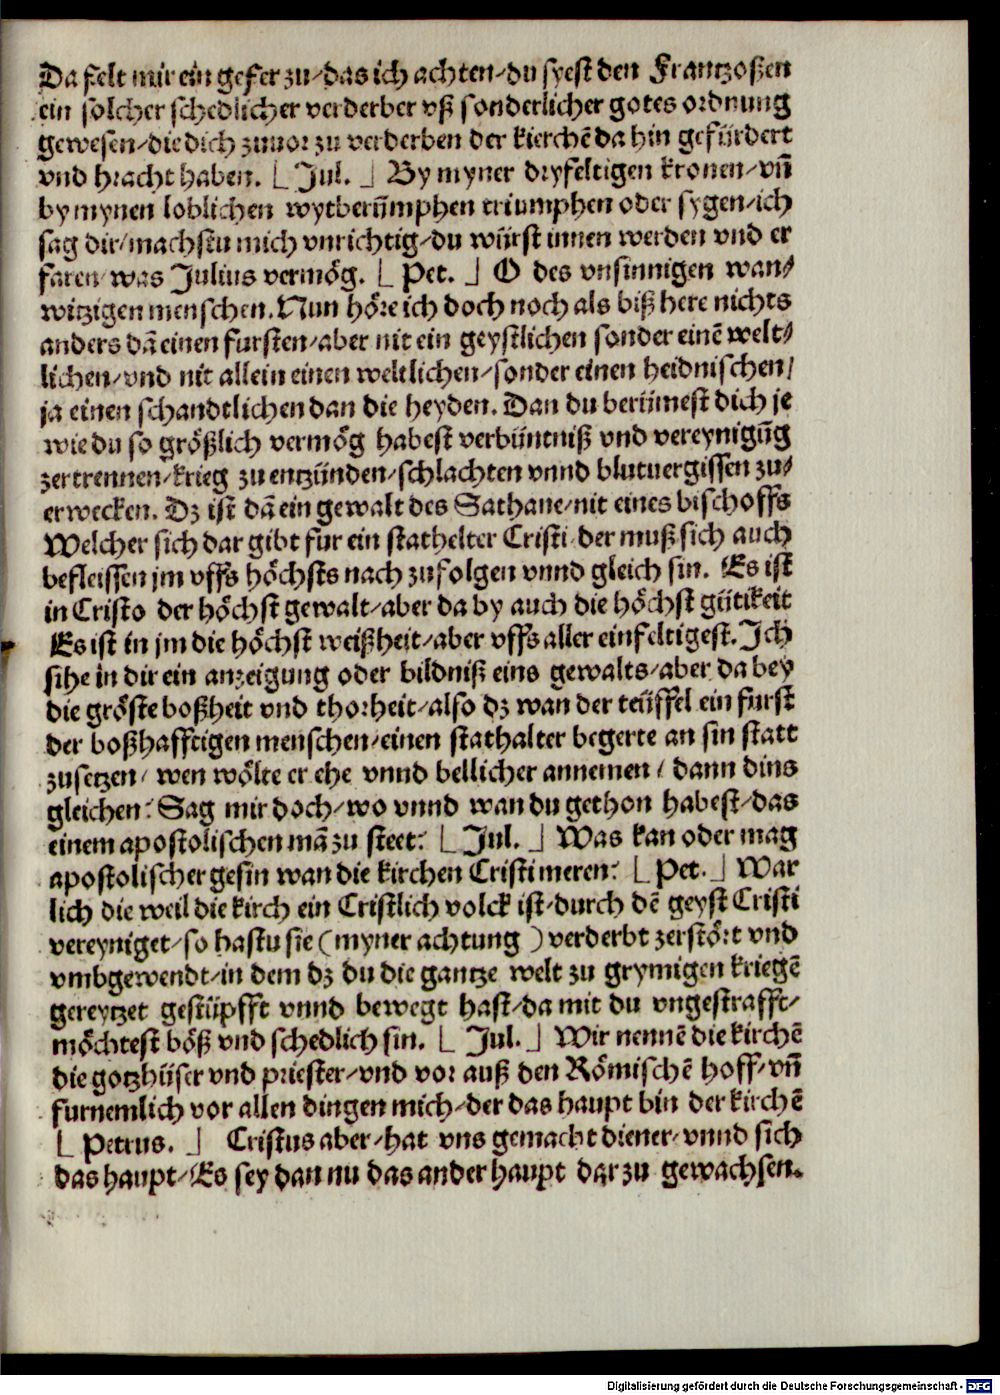 Da felt mir ein gefer zu/das ich achten/du syest den Frantzoßen
ein solcher schedlicher verderber vß sonderlicher gotes ordnung
gewesen/die dich zuuor zu verderben der kierchē da hin gefürdert
vnd bracht haben. ⌊ Jul. ⌋ By myner dryfeltigen kronen/vñ
by mynen loblichen wytberümphen triumphen oder sygen/ich
sag dir/machstu mich vnrichtig/du würst innen werden vnd er
faren/was Julius vermög. ⌊ Pet. ⌋ O des vnsinnigen wan/
witzigen menschen. Nun höre ich doch noch als biß here nichts
anders dā einen fursten/aber nit ein geystlichen sonder einē welt/
lichen/vnd nit allein einen weltlichen/sonder einen heidnischen/
ja einen schandtlichen dan die heyden. Dan du berümest dich je
wie du so größlich vermög habest verbüntniß vnd vereynigūg
zertrennen/krieg zu entzünden/schlachten vnnd blutuergissen zu/
erwecken. Dz ist dā ein gewalt des Sathane/nit eines bischoffs
Welcher sich dar gibt fur ein stathelter Cristi der muß sich auch
befleissen jm vffs höchsts nach zufolgen vnnd gleich sin. Es ist
in Cristo der höchst gewalt/aber da by auch die höchst gütikeit
Es ist in jm die höchst weißheit/aber vffs aller einfeltigest. Ich
sihe in dir ein anzeigung oder bildniß eins gewalts/aber da bey
die gröste boßheit vnd thorheit/also dz wan der teüffel ein furst
der boßhafftigen menschen/einen stathalter begerte an sin statt
zusetzen/ wen wölte er ehe vnnd bellicher annemen/ dann dins
gleichen? Sag mir doch/wo vnnd wan du gethon habest/das
einem apostolischen mā zu steet? ⌊ Jul. ⌋ Was kan oder mag
apostolischer gesin wan die kirchen Cristi meren? ⌊ Pet. ⌋ War
lich die weil die kirch ein Cristlich volck ist/durch dē geyst Cristi
vereyniget/so hastu sie (myner achtung) verderbt zerstört vnd
vmbgewendt/in dem dz du die gantze welt zu grymigen kriegē
gereytzet gestüpfft vnnd bewegt hast/da mit du vngestrafft/
möchtest böß vnd schedlich sin. ⌊ Jul. ⌋ Wir nennē die kirchē
die gotzhüser vnd priester/vnd vor auß den Römischē hoff/vñ
furnemlich vor allen dingen mich/der das haupt bin der kirchē
⌊ Petrus. ⌋ Cristus aber/hat vns gemacht diener/vnnd sich
das haupt/Es sey dan nu das ander haupt dar zu gewachsen.
Digitalisierung gefördert durch die Deutsche Forschungsgemeinschaft - DFG